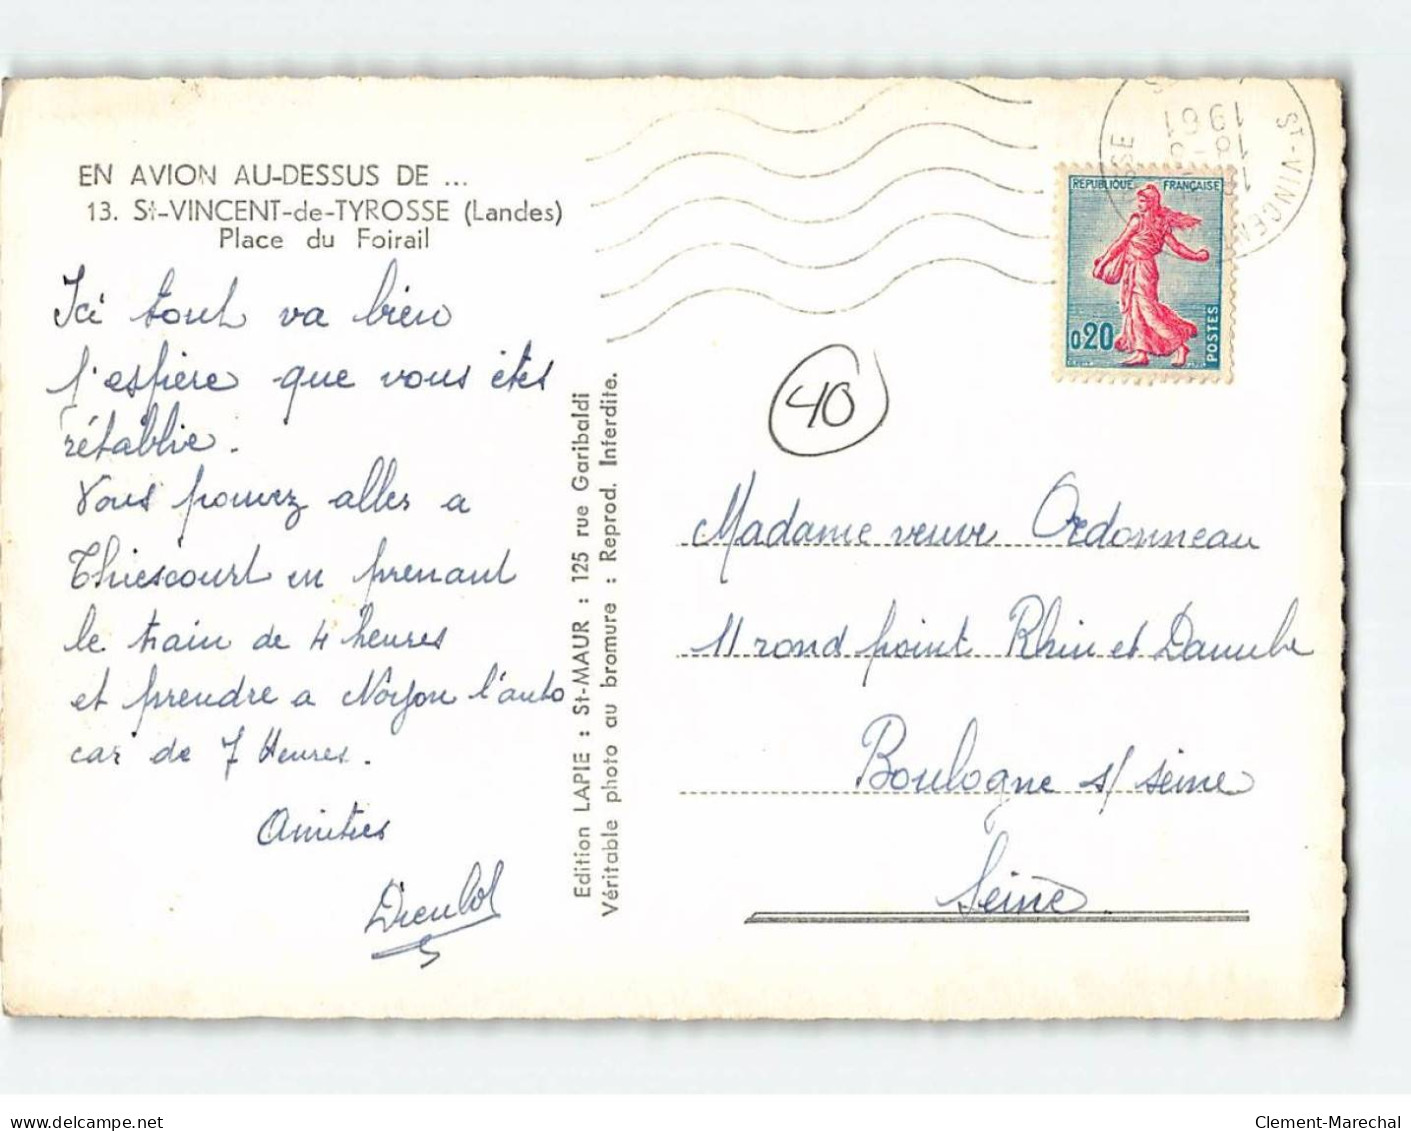 EN AVION AU-DESSUS DE ...
13. St-VINCENT-de-TYROSSE (Landes)
Place du Foirail
Ici tout va bien
j'espère que vous êtes
rétablie.
Vous pouvez aller a
Thiescourt en prenant
le train de 4 heures
et prendre a Noyon l'auto
car de 7 Heures.
Amitiés
Dieulol
Edition LAPIE : St-MAUR : 125 rue Garibaldi
Véritable photo au bromure : Reprod. Interdite.
ST-VINCEN
SSE
1961
REPUBLIQUE FRANÇAISE
0,20
POSTES
40
Madame veuve Ordonneau
11 rond point Rhin et Danube
Boulogne s/ seine
Seine
delcampe.net
Clement-Marechal